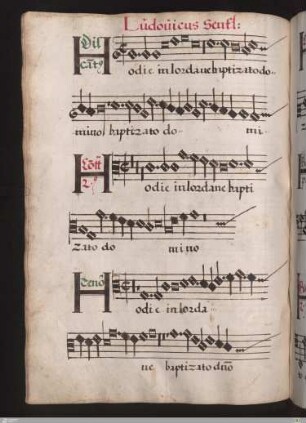 Ludouicus Senfl:
Hodie in Iordane baptizato do
mino baptizato do mi
Hodie in Iordane bapti
zato do mino
Hodie in Iorda
ne baptizato dno